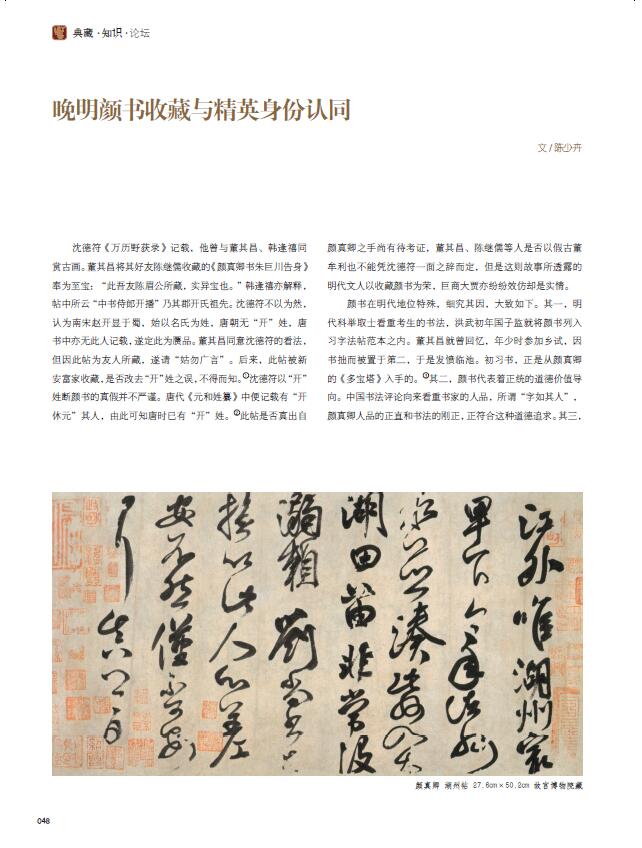 典藏·知识·论坛
晚明颜书收藏与精英身份认同
文/陈少卉
沈德符《万历野获录》记载，他曾与董其昌、韩逢禧同
赏古画。董其昌将其好友陈继儒收藏的《颜真卿书朱巨川告身》
奉为至宝：“此吾友陈眉公所藏，实异宝也。”韩逢禧亦解释，
帖中所云“中书侍郎开播”乃其郡开氏祖先。沈德符不以为然，
认为南宋赵开显于蜀，始以名氏为姓，唐朝无“开”姓，唐
书中亦无此人记载，遂定此为赝品。董其昌同意沈德符的看法，
但因此帖为友人所藏，遂请“姑勿广言”。后来，此帖被新
安富家收藏，是否改去“开”姓之误，不得而知。①沈德符以“开”
姓断颜书的真假并不严谨。唐代《元和姓纂》中便记载有“开
休元”其人，由此可知唐时已有“开”姓。②此帖是否真出自
颜真卿之手尚有待考证，董其昌、陈继儒等人是否以假古董
牟利也不能凭沈德符一面之辞而定，但是这则故事所透露的
明代文人以收藏颜书为荣，巨商大贾亦纷纷效仿却是实情。
颜书在明代地位特殊，细究其因，大致如下。其一，明
代科举取士看重考生的书法，洪武初年国子监就将颜书列入
习字法帖范本之内。董其昌就曾回忆，年少时参加乡试，因
书拙而被置于第二，于是发愤临池。初习书，正是从颜真卿
的《多宝塔》入手的。③其二，颜书代表着正统的道德价值导
向。中国书法评论向来看重书家的人品，所谓“字如其人”，
颜真卿人品的正直和书法的刚正，正符合这种道德追求。其三，
江外唯湖州最
卑下今年诸州
水并凑此州入太
湖田苗非常没
溺赖刘尚书与
拯以此人心差
安不然仅不可安
耳真卿白
颜真卿 湖州帖 27.6cm×50.2cm 故宫博物院藏
048